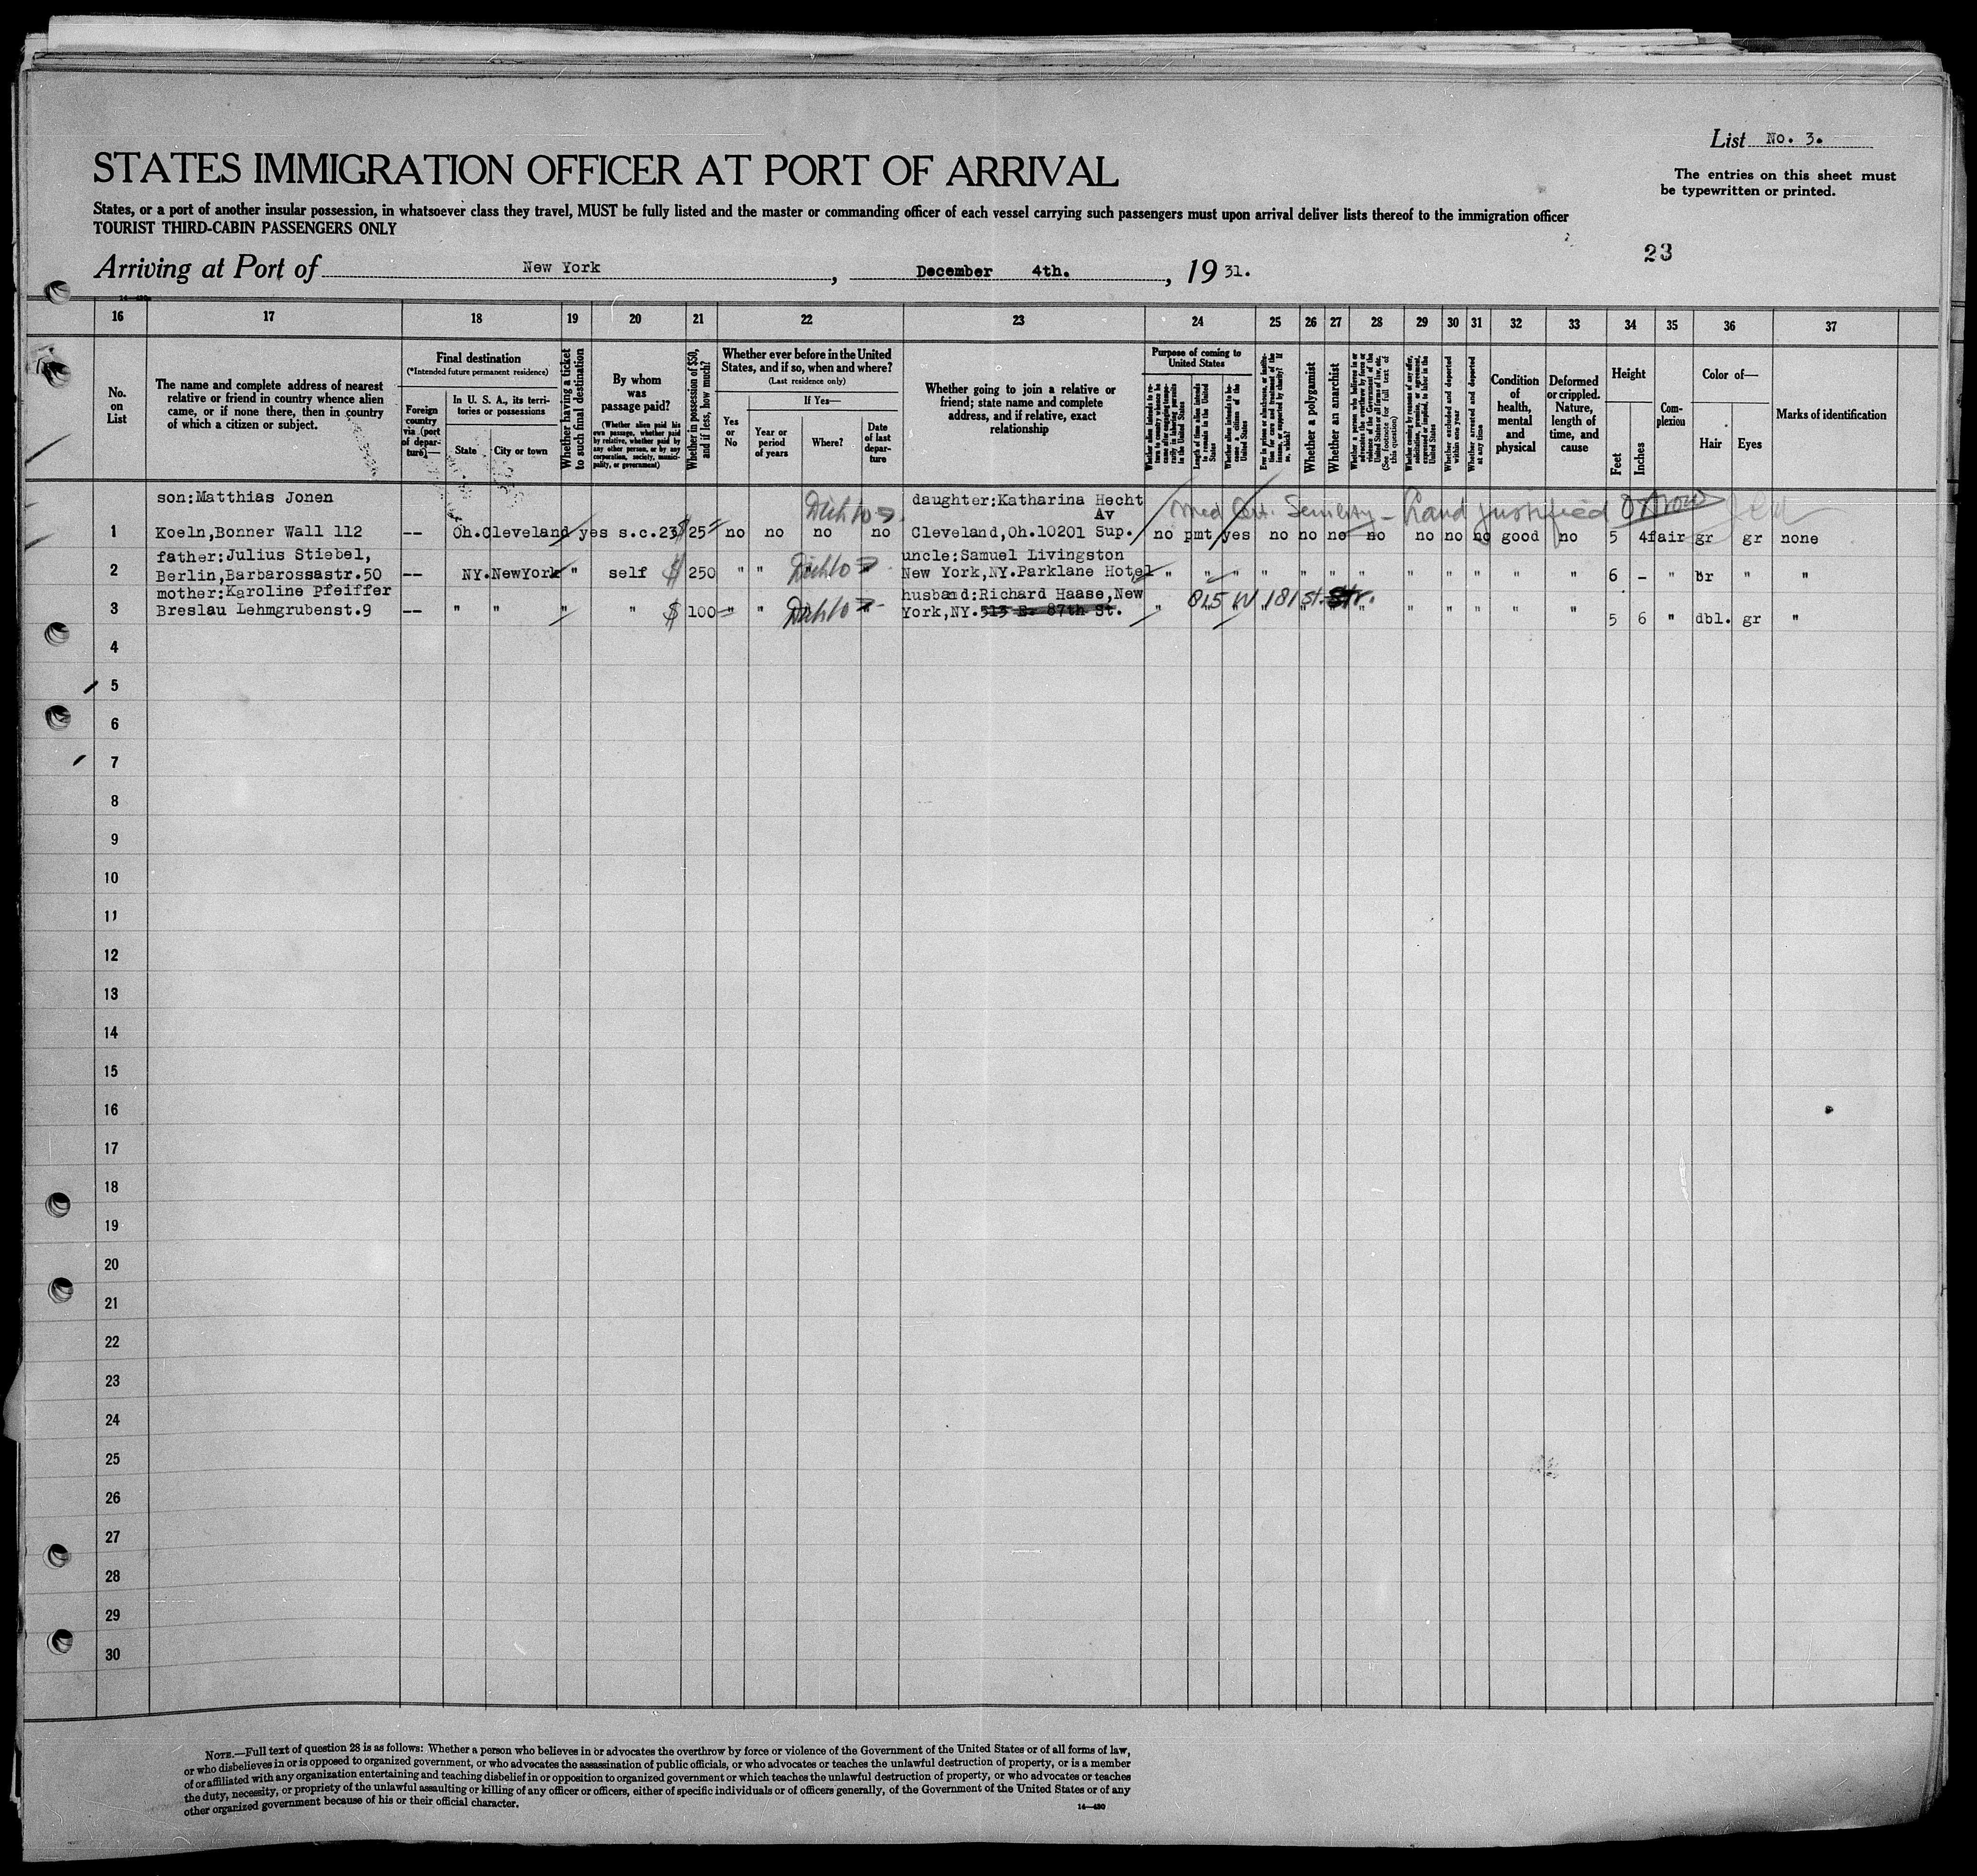 List No. 3.
STATES IMMIGRATION OFFICER AT PORT OF ARRIVAL
The entries on this sheet must
be typewritten or printed.
States, or a port of another insular possession, in whatsoever class they travel, MUST be fully listed and the master or commanding officer of each vessel carrying such passengers must upon arrival deliver lists thereof to the immigration officer
TOURIST THIRD-CABIN PASSENGERS ONLY
23
Arriving at Port of New York, December 4th., 1931.
16 17 18 19 20 21 22 23 24 25 26 27 28 29 30 31 32 33 34 35 36 37
No. on List
The name and complete address of nearest
relative or friend in country whence alien
came, or if none there, then in country
of which a citizen or subject.
Final destination
(*Intended future permanent residence)
Foreign country via (port of departure)—
In U. S. A., its territories or possessions
State
City or town
Whether having a ticket to such final destination
By whom was passage paid?
(Whether alien paid his own passage, whether paid by relative, whether paid by any other person, or by any corporation, society, municipality, or government)
Whether in possession of $50, and if less, how much?
Whether ever before in the United States, and if so, when and where?
(Last residence only)
Yes or No
If Yes—
Year or period of years
Where?
Date of last departure
Whether going to join a relative or
friend; state name and complete
address, and if relative, exact
relationship
Purpose of coming to United States
Whether alien intends to return to country whence he came after engaging temporarily in laboring pursuits in the United States
Length of time alien intends to remain in the United States
Whether alien intends to become a citizen of the United States
Ever in prison or almshouse, or institution for care and treatment of the insane, or supported by charity? If so, which?
Whether a polygamist
Whether an anarchist
Whether a person who believes in or advocates the overthrow by force or violence of the Government of the United States or all forms of law, etc. (See footnote for full text of this question)
Whether coming by reason of any offer, solicitation, promise, or agreement, expressed or implied, to labor in the United States
Whether excluded and deported within one year
Whether arrested and deported at any time
Condition of health, mental and physical
Deformed or crippled. Nature, length of time, and cause
Height
Feet
Inches
Complexion
Color of—
Hair
Eyes
Marks of identification
son:Matthias Jonen daughter:Katharina Hecht
Av
Med Cert. Senility - Land justified
1 Koeln,Bonner Wall 112 -- Oh.Cleveland yes s.c.23 $ 25 no no no no Cleveland,Oh.10201 Sup. no pmt yes no no no no no no no good no 5 4 fair gr gr none
father:Julius Stiebel, uncle:Samuel Livingston
2 Berlin,Barbarossastr.50 -- NY.NewYork " self $ 250 " " " " New York,NY.Parklane Hotel " " " " " " " " " " " " 6 - " br " "
mother:Karoline Pfeiffer husband:Richard Haase,New
3 Breslau Lehmgrubenst.9 -- " " " " $ 100 " " " York,NY.513 E. 87th St. 815 W 181 st. Str. " " " " " " " 5 6 " dbl. gr "
4
5
6
7
8
9
10
11
12
13
14
15
16
17
18
19
20
21
22
23
24
25
26
27
28
29
30
NOTE.—Full text of question 28 is as follows: Whether a person who believes in or advocates the overthrow by force or violence of the Government of the United States or of all forms of law,
or who disbelieves in or is opposed to organized government, or who advocates the assassination of public officials, or who advocates or teaches the unlawful destruction of property, or is a member
of or affiliated with any organization entertaining and teaching disbelief in or opposition to organized government or which teaches the unlawful destruction of property, or who advocates or teaches
the duty, necessity, or propriety of the unlawful assaulting or killing of any officer or officers, either of specific individuals or of officers generally, of the Government of the United States or of any
other organized government because of his or their official character.
14—430